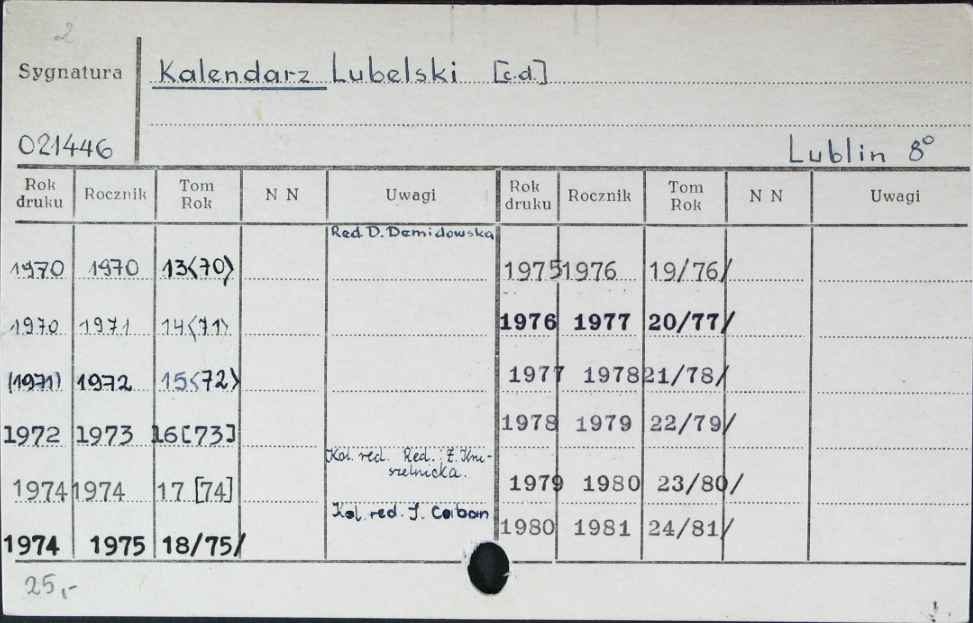 2
Sygnatura Kalendarz Lubelski [c.d.]
021446 Lublin 8°
Rok druku Rocznik Tom Rok N N Uwagi Rok druku Rocznik Tom Rok N N Uwagi
Red D. Demidowska
1970 1970 13<70> 1975 1976 19/76/
1970 1971 14<71> 1976 1977 20/77/
(1971) 1972 15<72> 1977 1978 21/78/
1972 1973 16[73] 1978 1979 22/79/
Kol. red. Red. Z.
1974 1974 17 [74] 1979 1980 23/80/
Kol. red. J. Caban
1974 1975 18/75/ 1980 1981 24/81/
25,-